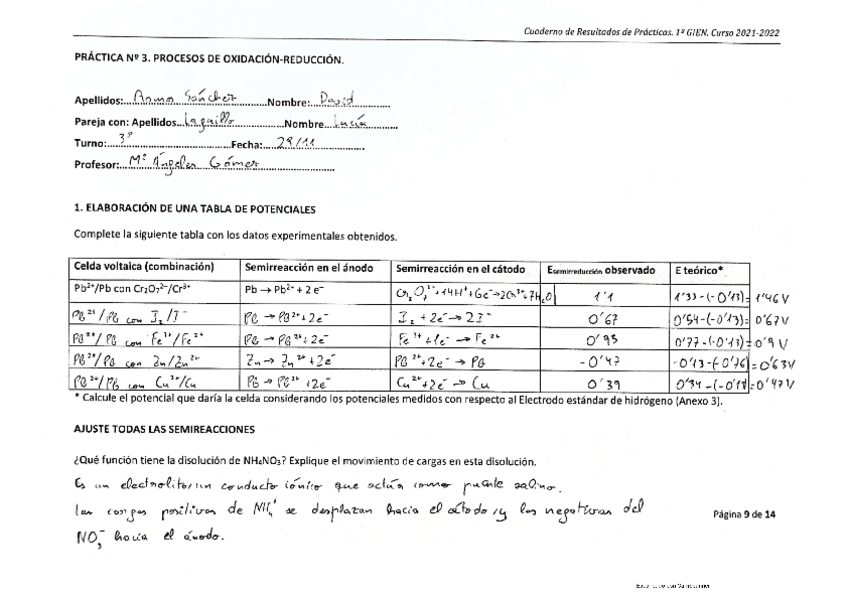 Cuaderno de Resultados de Prácticas. 1º GIEN. Curso 2021-2022
PRÁCTICA Nº 3. PROCESOS DE OXIDACIÓN-REDUCCIÓN.
Apellidos:... Sánchez ...Nombre:... David ...
Pareja con: Apellidos.. Laguillo ...Nombre.. Lucía ...
Turno:... 3º ...Fecha:... 29/11 ...
Profesor:... Mª Ángeles Gómez ...
1. ELABORACIÓN DE UNA TABLA DE POTENCIALES
Complete la siguiente tabla con los datos experimentales obtenidos.
Celda voltaica (combinación) Semirreacción en el ánodo Semirreacción en el cátodo Esemirreducción observado E teórico*
Pb²⁺/Pb con Cr₂O₇²⁻/Cr³⁺ Pb → Pb²⁺ + 2 e⁻ Cr₂O₇²⁻+14H⁺+6e⁻→2Cr³⁺+7H₂O 1'1 1'33-(-0'13)= 1'46 V
Pb²⁺/Pb con I₂/I⁻ Pb → Pb²⁺+2e⁻ I₂ + 2e⁻ → 2I⁻ 0'67 0'54-(-0'13)= 0'67V
Pb²⁺/Pb con Fe³⁺/Fe²⁺ Pb → Pb²⁺ + 2e⁻ Fe³⁺ + 1e⁻ → Fe²⁺ 0'95 0'77-(-0'13)=0'9 V
Pb²⁺/Pb con Zn/Zn²⁺ Zn → Zn²⁺ +2e⁻ Pb²⁺+2e⁻ → Pb -0'47 -0'13-(-0'76)=0'63V
Pb²⁺/Pb con Cu²⁺/Cu Pb → Pb²⁺ +2e⁻ Cu²⁺+2e⁻ → Cu 0'39 0'34-(-0'13)=0'47V
* Calcule el potencial que daría la celda considerando los potenciales medidos con respecto al Electrodo estándar de hidrógeno (Anexo 3).
AJUSTE TODAS LAS SEMIREACCIONES
¿Qué función tiene la disolución de NH₄NO₃? Explique el movimiento de cargas en esta disolución.
Es un electrolito/un conducto iónico que actúa como puente salino.
Las cargas positivas de NH₄⁺ se desplazan hacia el cátodo, y las negativas del
NO₃⁻ hacia el ánodo.
Página 9 de 14